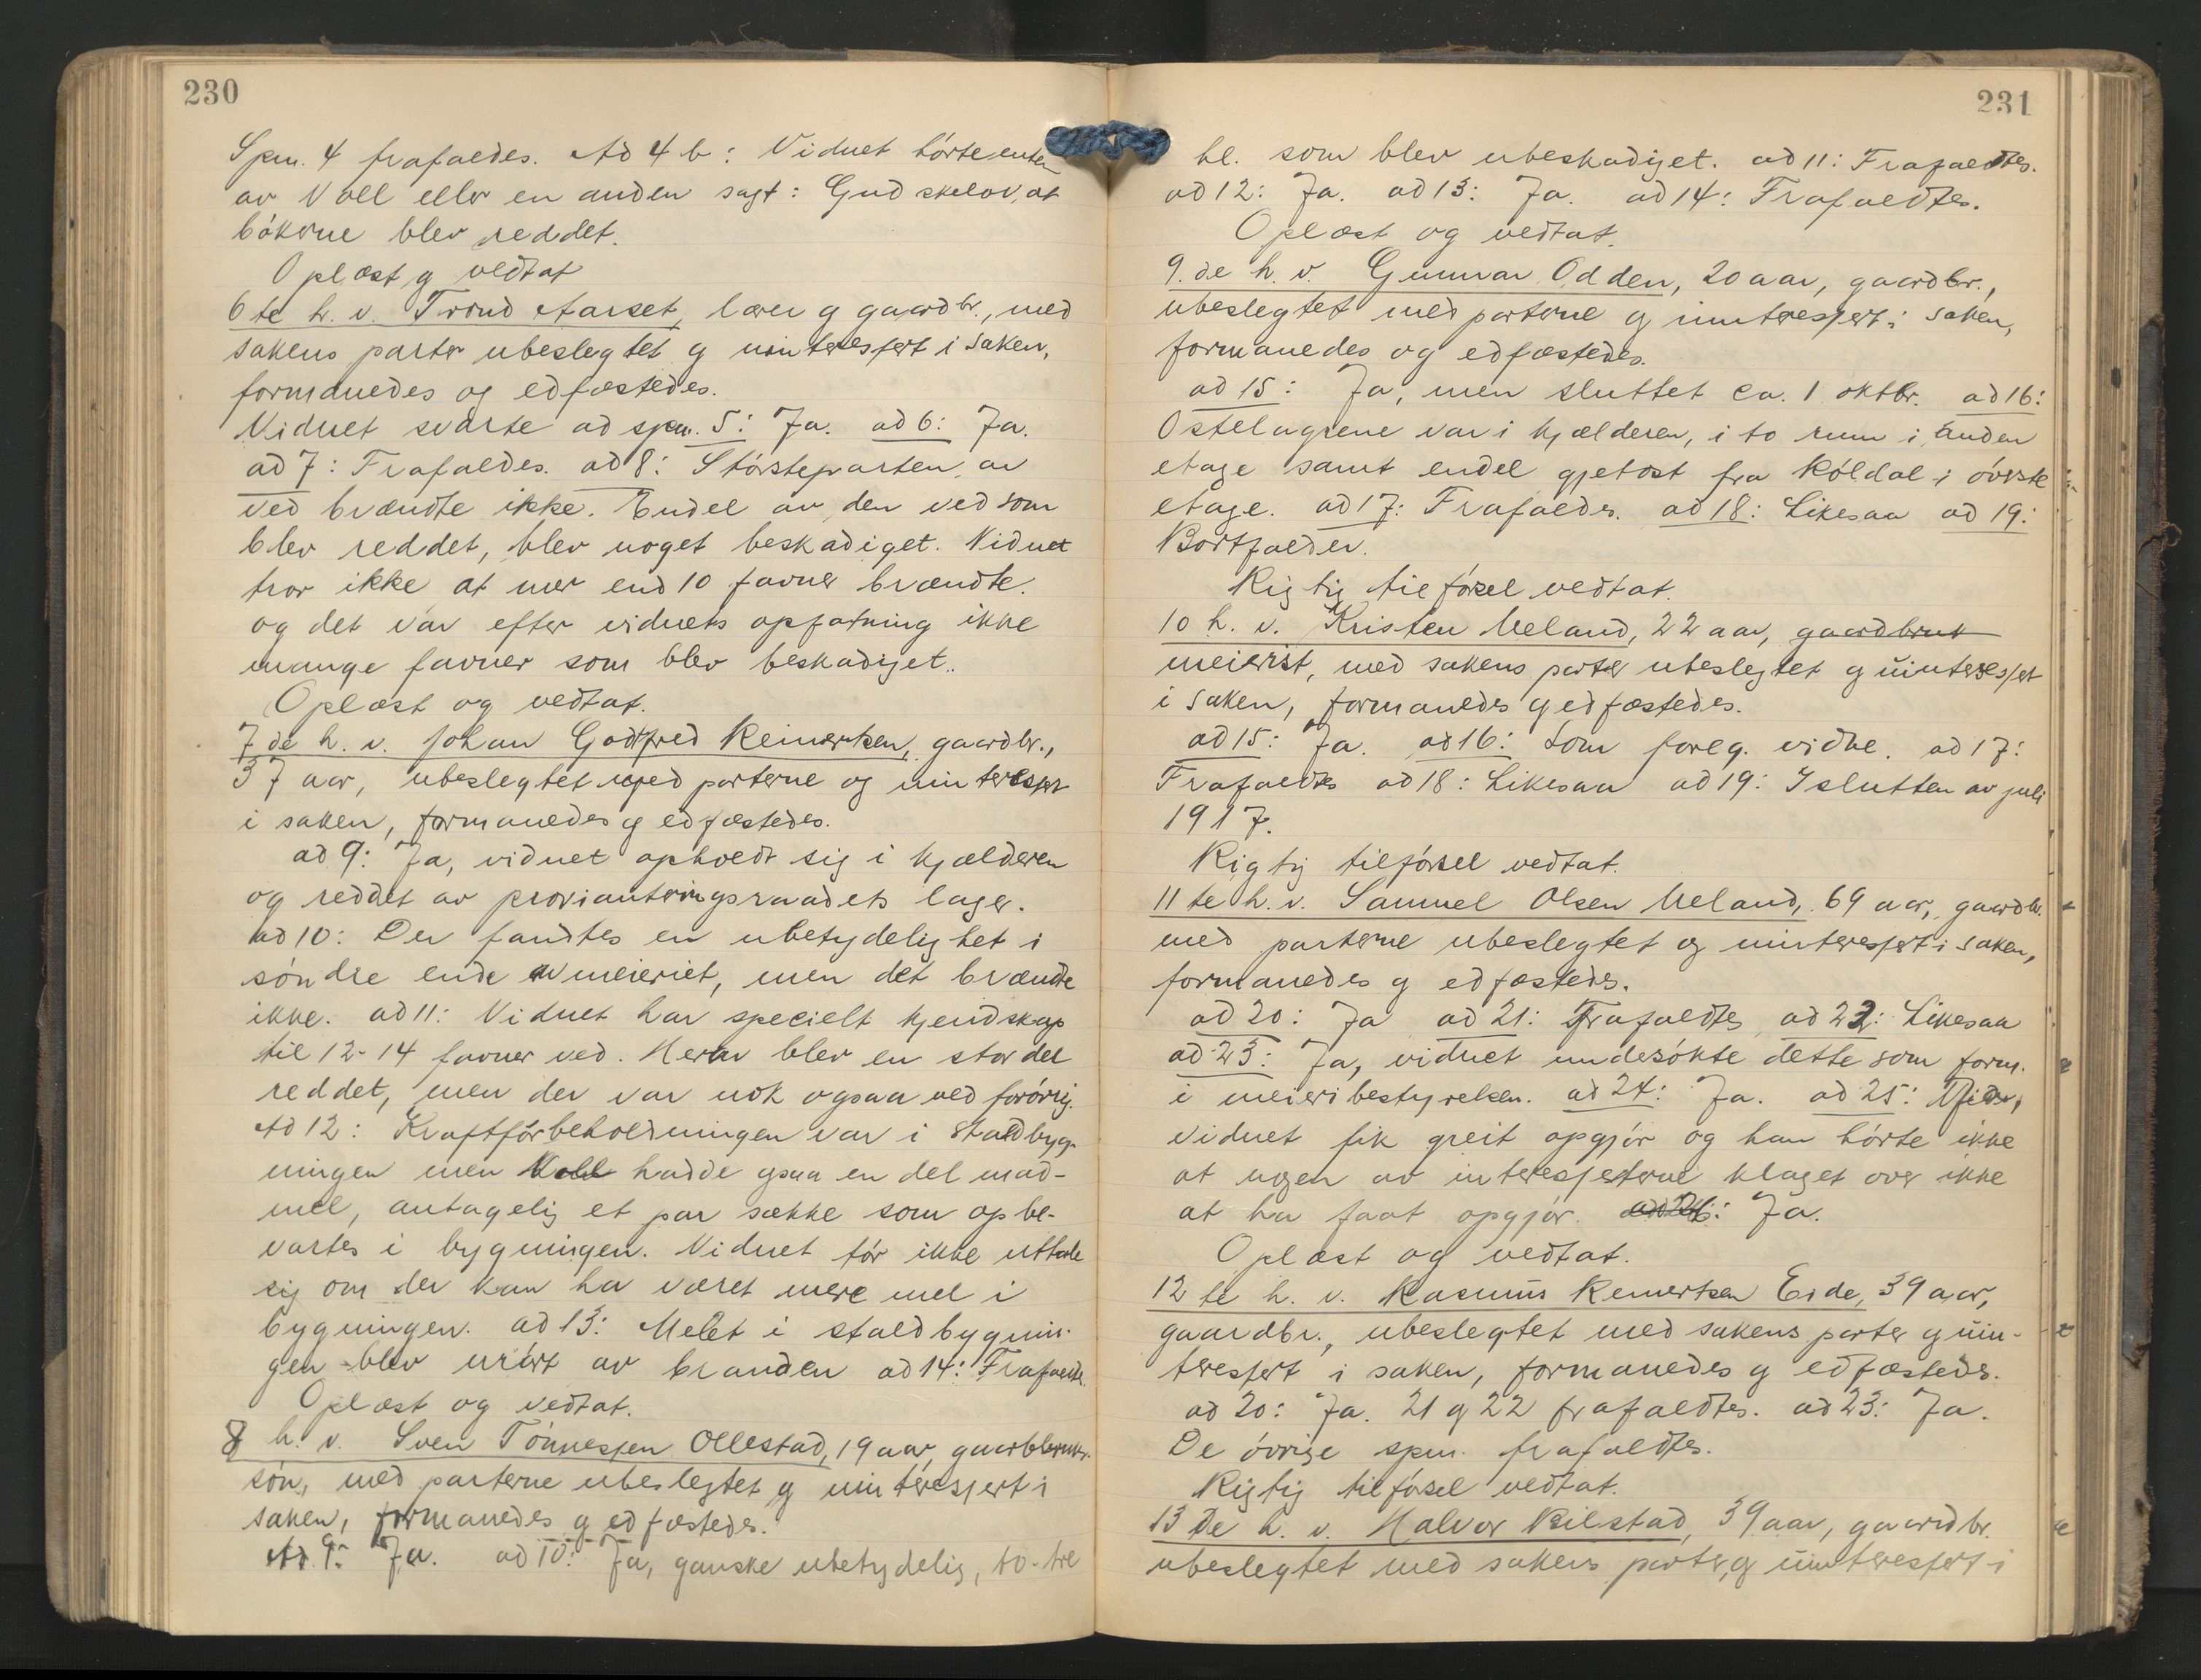 230
Spm. 4 frafaldes. Ad 4 b: Vidnet hørte enten
av Voll eller en anden sagt: Gud skelov, at
bøkerne blev reddet.
Oplæst og vedtat
6te h. v. Trond Aarset, lærer og gaardbr., med
sakens parter ubeslegtet og uinteressert i saken,
formanedes og edfæstedes.
Vidnet svarte ad spm. 5: Ja. ad 6: Ja.
ad 7: Frafaldes. ad 8: Størsteparten av
ved brændte ikke. Endel av den ved som
blev reddet, blev noget beskadiget. Vidnet
tror ikke at mer end 10 favner brændte.
og det var efter vidnets opfatning ikke
mange favner som blev beskadiget.
Oplæst og vedtat.
7de h. v. Johan Godtfred Reinertsen, gaardbr.,
37 aar, ubeslegtet med parterne og uinteressert
i saken, formanedes og edfæstedes.
ad 9: Ja, vidnet opholdt sig i kjælderen
og reddet av provianteringsraadets lager.
ad 10: Der fandtes en ubetydelighet i
søndre ende av meieriet, men det brændte
ikke. ad 11: Vidnet har specielt kjendskap
til 12-14 favner ved. Herav blev en stor del
reddet, men der var nok ogsaa ved forøvrig.
Ad 12: Kraftfôrbeholdningen var i staldbyg-
ningen men Voll hadde ogsaa en del mad-
mel, antagelig et par sække som opbe-
vartes i bygningen. Vidnet tør ikke uttale
sig om der kan ha været mere mel i
bygningen. ad 13: Melet i staldbygnin-
gen blev urørt av branden ad 14: Frafaldtes.
Oplæst og vedtat.
8 h. v. Sven Tønnessen Ollestad, 19 aar, gaardbruker-
søn, med parterne ubeslegtet og uinteressert i
saken, formanedes og edfæstedes.
Ad 9: Ja. ad 10: Ja, ganske ubetydelig, to-tre
231
hl. som blev ubeskadiget. ad 11: Frafaldtes.
ad 12: Ja. ad 13: Ja. ad 14: Frafaldtes.
Oplæst og vedtat.
9.de h. v. Gunnar Odden, 20 aar, gaardbr.,
ubeslegtet med parterne og uinteressert i saken,
formanedes og edfæstedes.
ad 15: Ja, men sluttet ca. 1 oktbr. ad 16:
Ostelagrene var i kjælderen, i to rum i anden
etage samt endel gjetost fra Røldal i øverste
etage. ad 17: Frafaldes. ad 18: Likesaa ad 19:
Bortfalder.
Rigtig tilførsel vedtat.
10 h. v. Kristen Meland, 22 aar, gaardbruk
meierist, med sakens parter ubeslegtet og uinteressert
i saken, formanedes og edfæstedes.
ad 15: Ja. ad 16: Som foreg. vidne. ad 17:
Frafaldtes ad 18: Likesaa ad 19: I slutten av juli
1917.
Rigtig tilførsel vedtat.
11te h. v. Samuel Olsen Meland, 69 aar, gaardbr.
med parterne ubeslegtet og uinteressert i saken,
formanedes og edfæstedes.
ad 20: Ja ad 21: Frafaldtes ad 22: Likesaa
ad 23: Ja, vidnet undersøkte dette som form.
i meieribestyrelsen. ad 24: Ja. ad 25:
vidnet fik greit opgjør og han hørte ikke
at nogen av interesserterne klaget over ikke
at ha faat opgjør. ad 26: Ja.
Oplæst og vedtat.
12te h. v. Rasmus Reinertsen Eide, 39 aar,
gaardbr., ubeslegtet med sakens parter og uin-
teressert i saken, formanedes og edfæstedes.
ad 20: Ja. 21 og 22 frafaldtes. ad 23: Ja.
De øvrige spm. frafaldtes.
Rigtig tilførsel vedtat.
13de h. v. Halvor Bilstad, 39 aar, gaardbr.
ubeslegtet med sakens parter, og uinteressert i